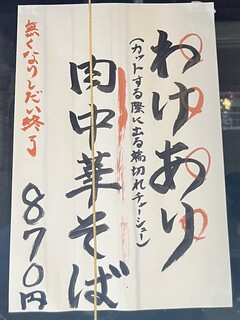 わゆあり
(カットする際に出る端切れチャーシュー)
肉中華そば
870円
無くなりしだい終了